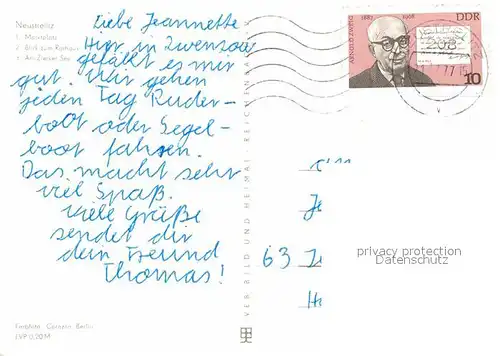 Neustrelitz
Liebe Jeannette
1. Marktplatz
2. Blick zum Rathaus
3. Am Zierker See
Hier in Zwenzow
gefällt es mir
gut. Wir gehen
jeden Tag Ruder-
boot oder Segel-
boot fahren.
Das macht sehr
viel Spaß.
Viele Grüße
sendet dir
dein Freund
Thomas!
Farbfoto: Berlin
EVP 0,20 M
VEB BILD UND HEIMAT REICHENBACH
ARNOLD ZWEIG
1887 1968
DDR
208
77
10
63
privacy protection
Datenschutz